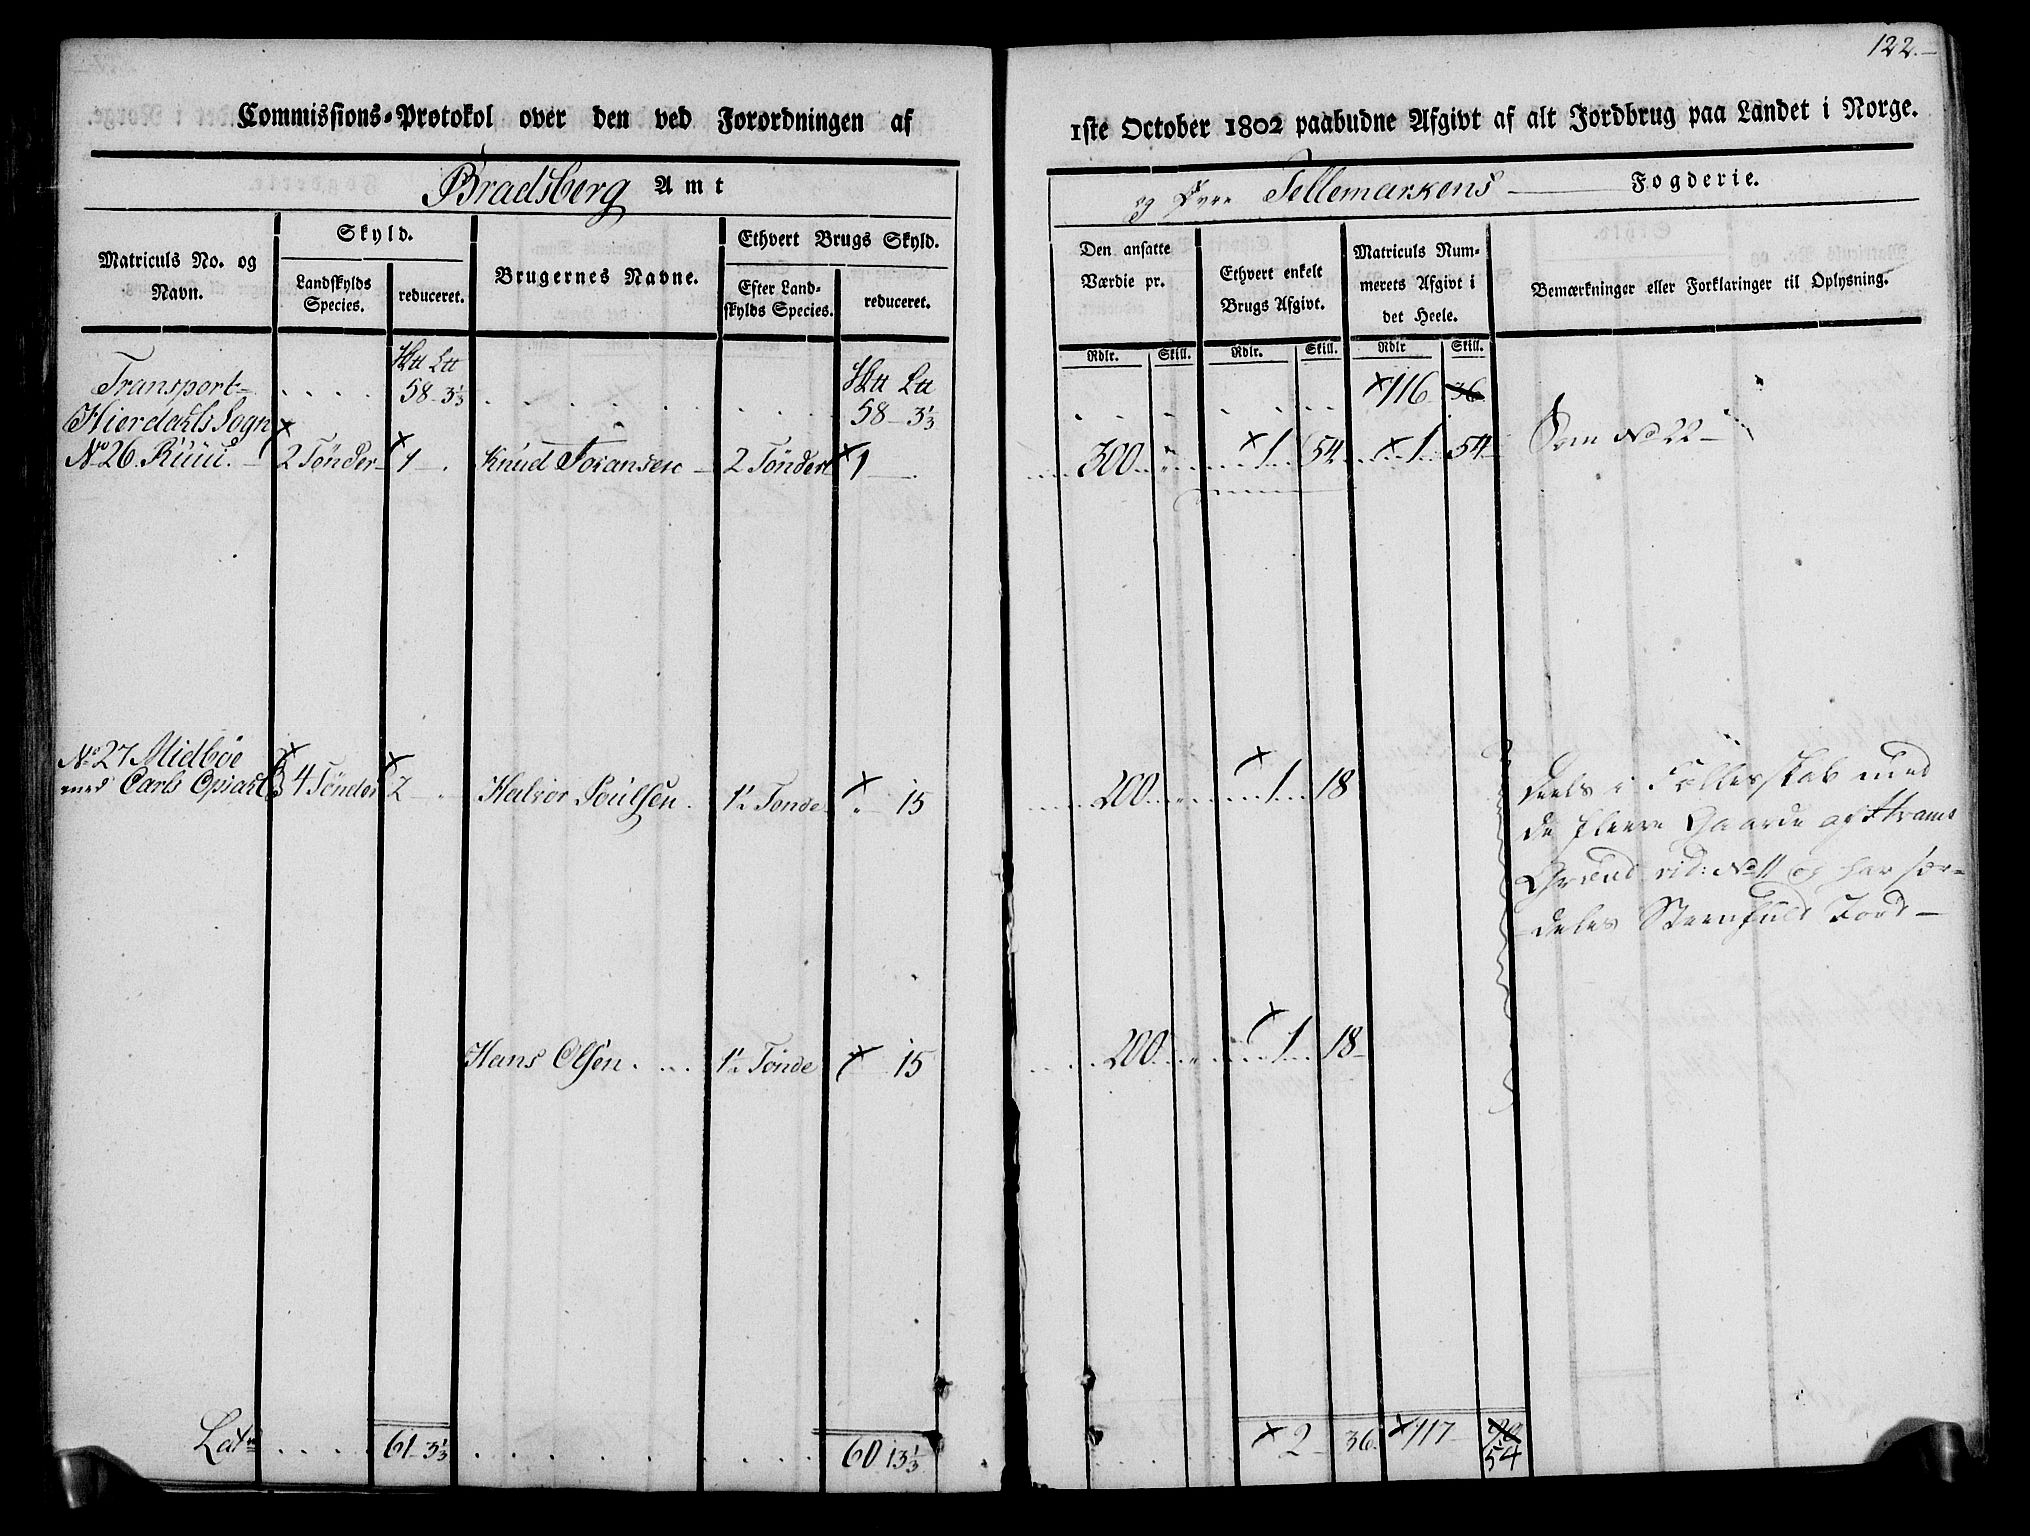 122.
Commissions-Protokol over den ved Forordningen af
1ste October 1802 paabudne Afgivt af alt Jordbrug paa Landet i Norge.
Bradsberg Amt
og Øvre Tellemarkens Fogderie.
Matriculs No. og Navn.
Skyld.
Landskylds Species.
reduceret.
Brugernes Navne.
Ethvert Brugs Skyld.
Efter Landskylds Species.
reduceret.
Den ansatte Værdie pr.
Ethvert enkelt Brugs Afgivt.
Matriculs Nummerets Afgivt i det Heele.
Bemærkninger eller Forklaringer til Oplysning.
Rdlr. Skill. Rdlr. Skill. Rdlr Skill.
Transport 58 - 3⅓ 58 - 3⅓ 116 36
Hierdahls Sogn
No 26. Ruuu. 2 Tønder 1 Knud 2 Tønder 1 300 1 54 1 54 Som No 22
No 27 Midbøe
med Carls 4 Tønder 2 Halvor 1½ Tønde 15 200 1 18 Deels i Fellesskab med
de fleere Gaarde af Hrams
Grænd vid: No 11 og har sær-
deles Steenfuld Jord
Hans Olsen 1½ Tønde 15 200 1 18
Lat 61 - 3⅓ 60 13⅓ 2 36 117 54